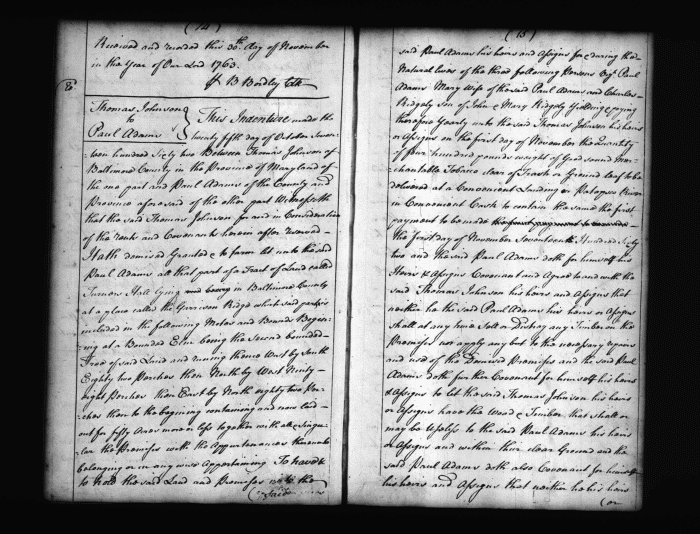 (14)
Received and recorded this 30th day of November
in the Year of Our Lord 1763.
B Bordley Clk
8
Thomas Johnson
to
Paul Adams
This Indenture made the
twenty fifth day of October Seven-
teen hundred Sixty two Between Thomas Johnson of
Baltimore County in the Province of Maryland of
the one part and Paul Adams of the County and
Province aforesaid of the other part Witnesseth
that the said Thomas Johnson for and in Consideration
of the rents and Covenants herein after reserved
Hath demised Granted & to farm let unto the said
Paul Adams all that part of a Tract of Land called
Turners Hall lying and being in Baltimore County
at a place called the Garrison Ridge which said part is
included in the following Metes and Bounds Begin-
ing at a Bounded Elm being the Second bounded
Tree of said Land and runing thence West by South
Eighty two Perches then North by West Ninty
eight Perches then East by North eighty two Per-
ches then to the begining containing and now laid
out for fifty Acres more or less together with all Singu-
lar the Premises with the Appurtenances thereunto
belonging or in any wise Appertaining To have &
to hold the said Land and Premises unto the
said
(15)
said Paul Adams his heirs and Assigns for & during the
Natural lives of the three following Persons Paul
Adams Mary Wife of the said Paul Adams and Charles
Ridgely Son of John & Mary Ridgely Yielding & paying
therefore Yearly unto the said Thomas Johnson his heirs
or Assigns on the first day of November the Quantity
of four hundred pounds weight of Good sound Mer-
chantable Tobacco clear of Trash or Ground leaf to be
delivered at a Convenient Landing on Patapsco River
in Convenient Cask to contain the same the first
payment to be made
the first day of November Seventeenth Hundred Sixty
two and the said Paul Adams doth for himself his
Heirs & Assigns Covenant and Agree to and with the
said Thomas Johnson his heirs and Assigns that
neither he the said Paul Adams his heirs or Assigns
shall at any time Sell or Destroy any Timber on the
Premises nor apply any but to the necessary repairs
and use of the Demised Premises and the said Paul
Adams doth further Covenant for himself his heirs
& Assigns to let the said Thomas Johnson his heirs
or Assigns have the Wood & Timber that shall or
may be Useless to the said Paul Adams his heirs
or Assigns and within their clear Ground and the
said Paul Adams doth also Covenant for himself
his heirs and Assigns that neither he his heirs
(or